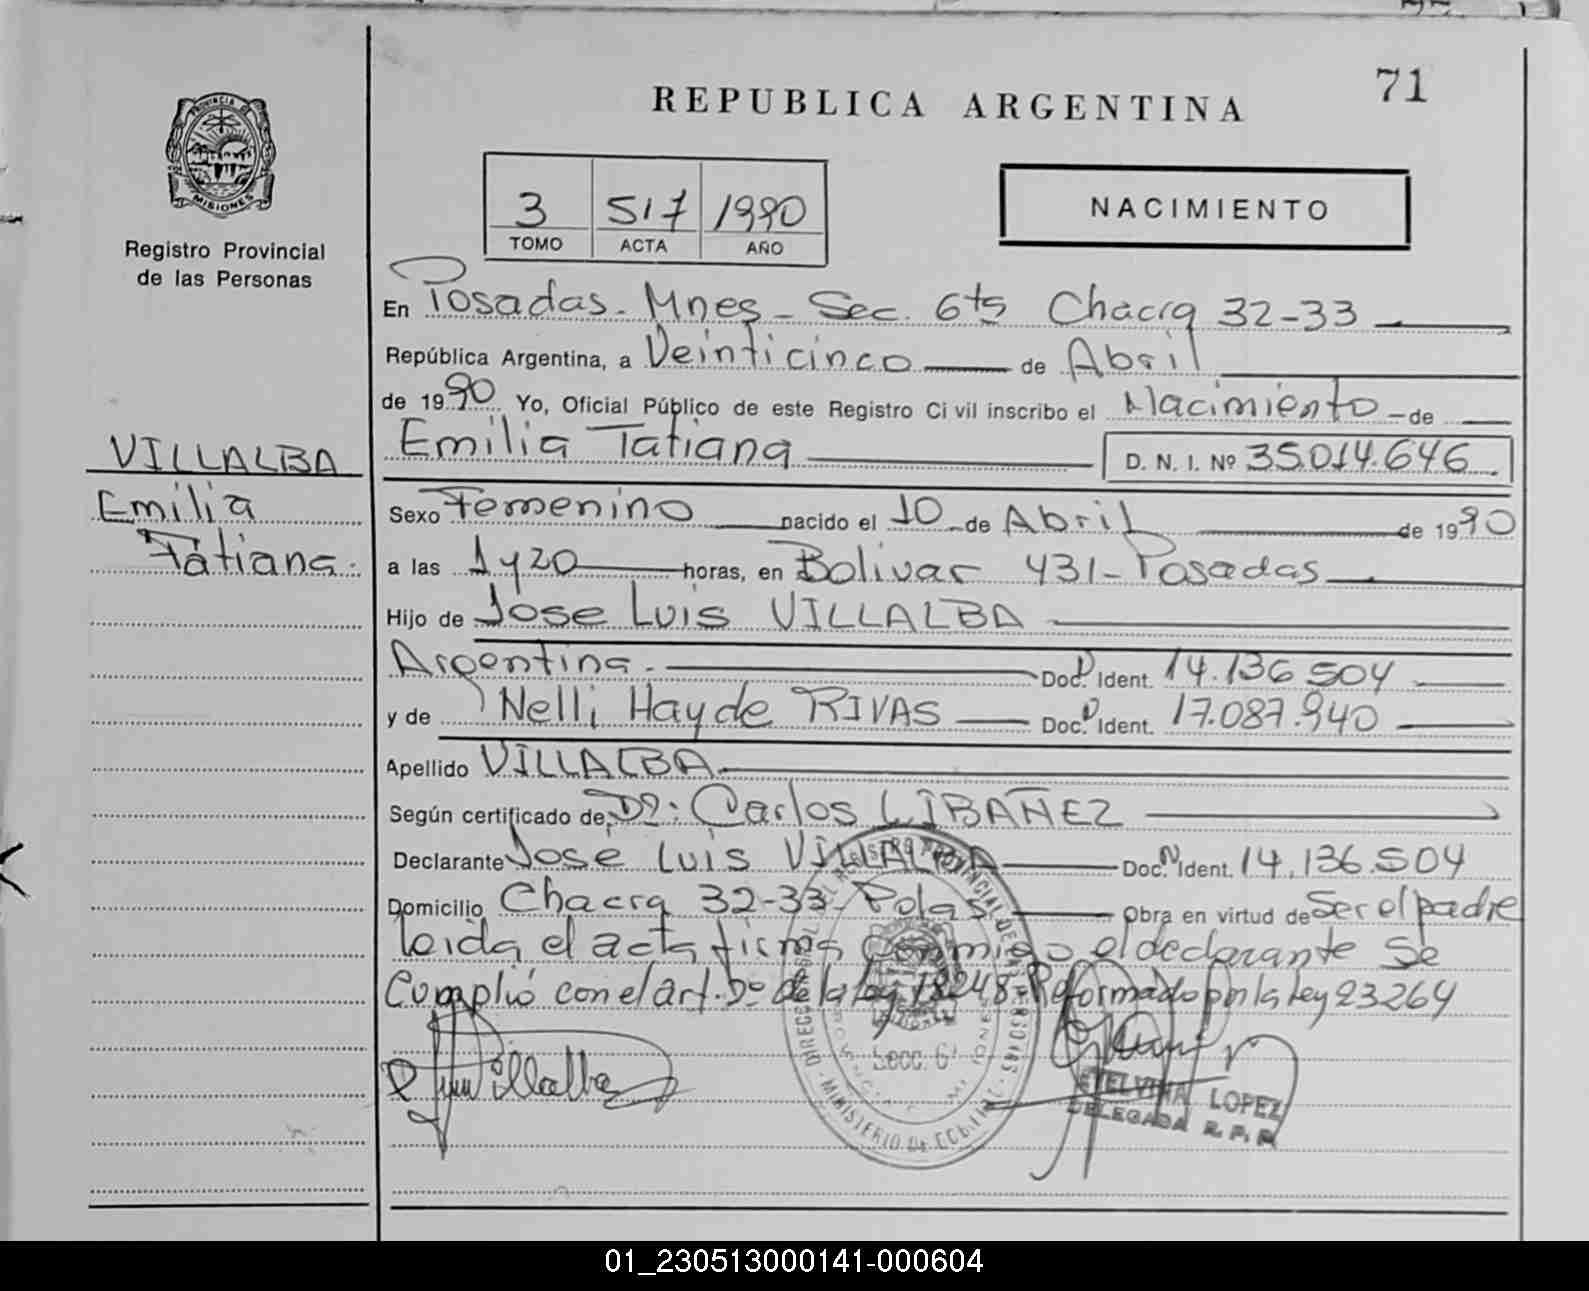 71
REPUBLICA ARGENTINA
PROVINCIA DE
MISIONES
Registro Provincial
de las Personas
3 517 1990
TOMO ACTA AÑO
NACIMIENTO
En Posadas - Mnes - Sec. 6ta Chacra 32-33
República Argentina, a Veinticinco de Abril
de 1990 Yo, Oficial Público de este Registro Civil inscribo el Nacimiento - de
Emilia Tatiana D. N. I. Nº 35.014.646
VILLALBA
Emilia
Tatiana.
Sexo Femenino nacido el 10 de Abril de 1990
a las 1 y 20 horas, en Bolivar 431 - Posadas
Hijo de Jose Luis VILLALBA
Argentina. Doc. Ident. 14.136.504
y de Nelli Hayde RIVAS Doc. Ident. 17.087.940
Apellido VILLALBA
Según certificado de Dr: Carlos LIBAÑEZ
Declarante Jose Luis VILLALBA Doc. Ident. 14.136.504
Domicilio Chacra 32-33 Pdas Obra en virtud de Ser el padre
leida el acta firma conmigo el declarante Se
Cumplió con el art. 2º de la Ley 18248 Reformado por la Ley 23264
Villalba
DIRECCION DEL REGISTRO PROVINCIAL DE LAS PERSONAS
Secc. 6
ETELVINA LOPEZ
DELEGADA R. P. P.
01_230513000141-000604